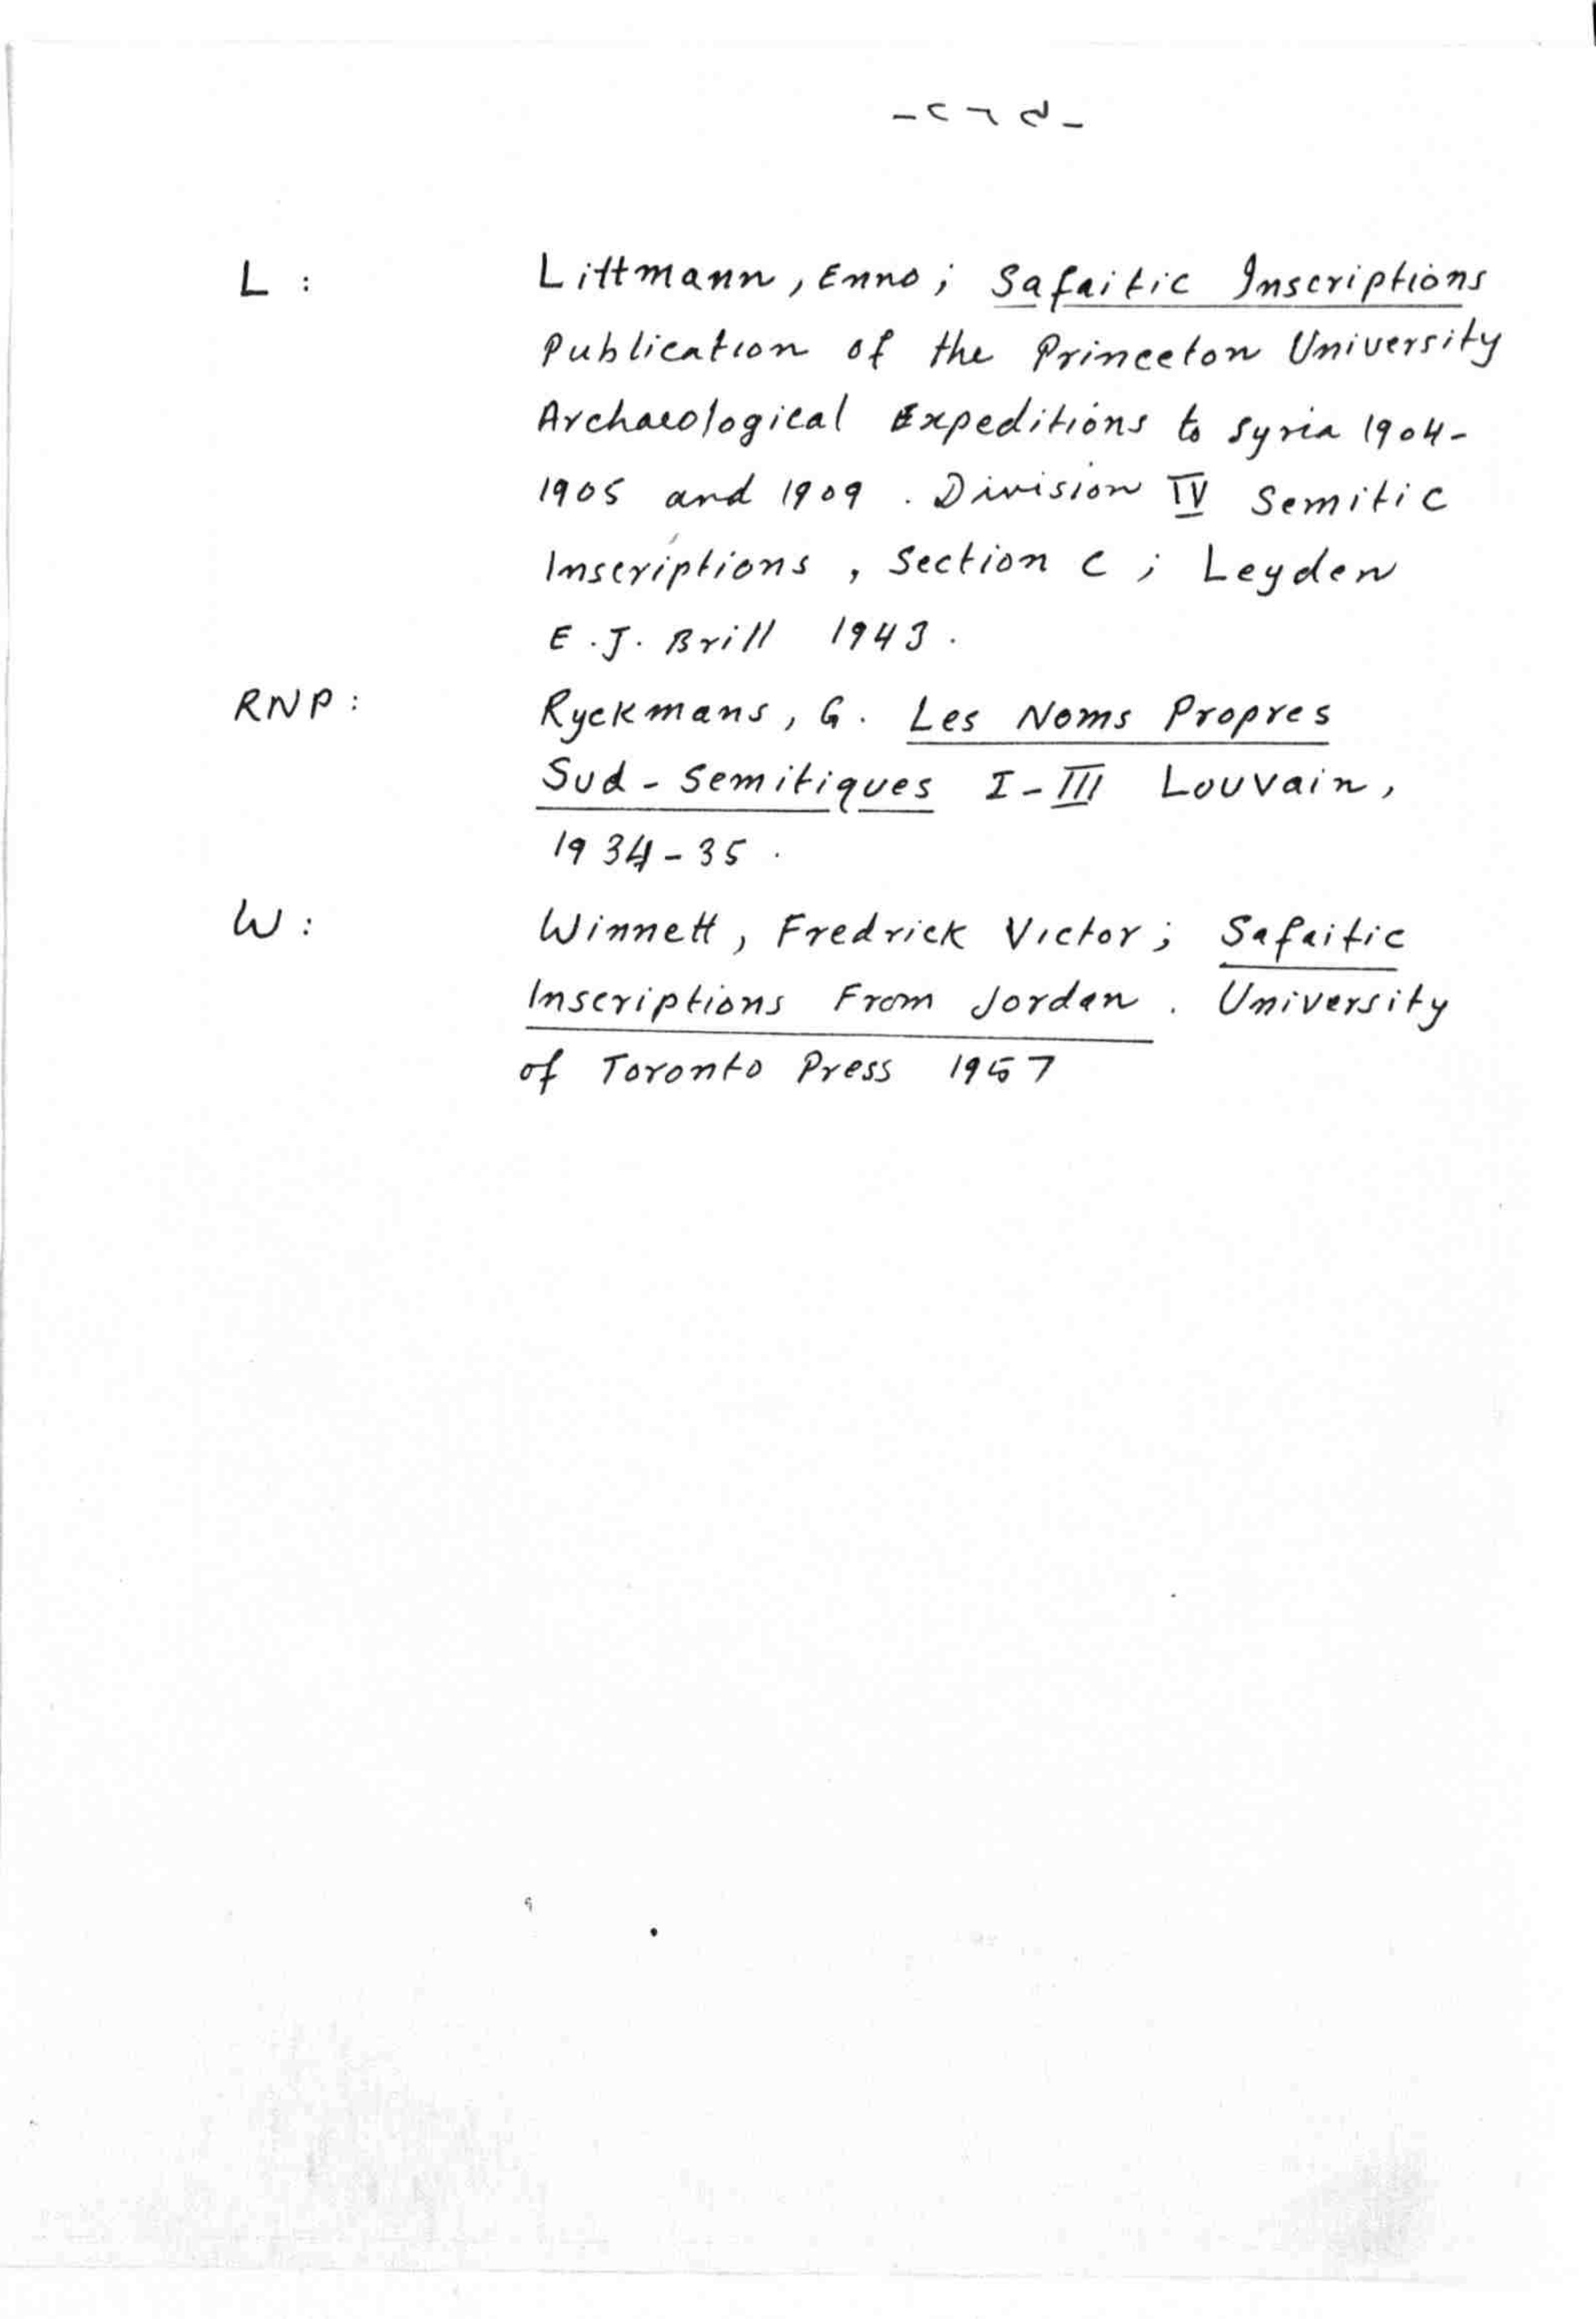 L : Littmann, Enno; Safaitic Inscriptions
Publication of the Princeton University
Archaeological Expeditions to Syria 1904-
1905 and 1909 . Division IV Semitic
Inscriptions , Section C ; Leyden
E . J. Brill 1943 .
RNP : Ryckmans, G. Les Noms Propres
Sud - Semitiques I - III Louvain,
1934-35 .
W : Winnett, Fredrick Victor; Safaitic
Inscriptions From Jordan . University
of Toronto Press 1957